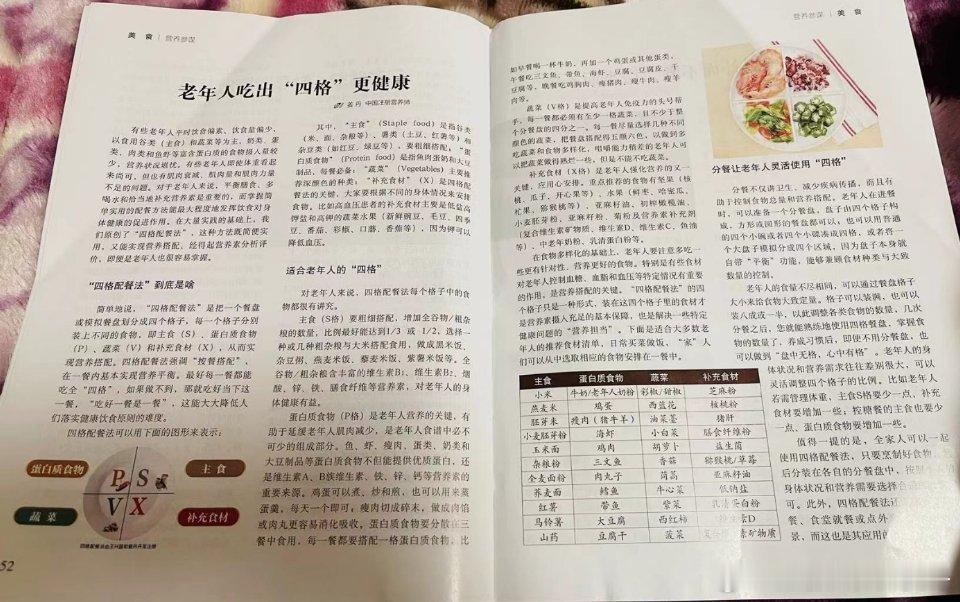 美 食 | 营养参谋
老年人吃出“四格”更健康
中国注册营养师
有些老年人平时饮食偏素、饮食量偏少,
以食用谷类(主食)和蔬菜等为主,奶类、蛋
类、肉类和鱼虾等富含蛋白质的食物摄入量较
少,营养状况堪忧。有些老年人即使体重看起
来尚可,但也有肌肉衰减、肌肉量和肌肉力量
不足的问题。对于老年人来说,平衡膳食、多
喝水和恰当地补充营养素是重要的,而掌握简
单实用的配餐方法能最大程度地发挥饮食对身
体健康的促进作用。在大量实践的基础上,我
们原创了“四格配餐法”,这种方法既简便实
用,又能实现营养搭配,经得起营养素分析评
价,即便是老年人也很容易掌握。
“四格配餐法”到底是啥
简单地说,“四格配餐法”是把一个餐盘
或模拟餐盘划分成四个格子,每一个格子分别
装上不同的食物,即主食(S)、蛋白质食物
(P)、蔬菜(V)和补充食材(X),从而实
现营养搭配。四格配餐法强调“按餐搭配”,
在一餐内基本实现营养平衡。最好每一餐都能
吃全“四格”,如果做不到,那就吃好当下这
一餐,“吃好一餐是一餐”,这能大大降低人
们落实健康饮食原则的难度。
四格配餐法可以用下面的图形来表示:
蛋白质食物
P S
主 食
V X
蔬 菜
补充食材
52
其中,“主食”(Staple food)是指谷类
(米、面、杂粮等)、薯类(土豆、红薯等)和
杂豆类(如红豆、绿豆等),要粗细搭配,“蛋
白质食物”(Protein food)是指鱼肉蛋奶和大豆
制品,每餐必备;“蔬菜”(Vegetables)主要推
荐深颜色的种类;“补充食材”(X)是四格配
餐法的关键,大家要根据不同的身体情况来安排
食物。比如高血压患者的补充食材主要是低盐高
钾盐和高钾的蔬菜水果(新鲜豌豆、毛豆、四季
豆、香菇、彩椒、口蘑、香蕉等),因为钾可以
降低血压。
适合老年人的“四格”
对老年人来说,四格配餐法每个格子中的食
物都很有讲究。
主食(S格)要粗细搭配,增加全谷物/粗杂
粮的数量,比例最好能达到1/3 或 1/2,选择一
种或几种粗杂粮与大米搭配食用,做成黑米饭、
杂豆粥、燕麦米饭、藜麦米饭、紫薯米饭等。全
谷物/粗杂粮含丰富的维生素B₁、维生素B₂、烟
酸、锌、铁、膳食纤维等营养素,对老年人的身
体健康有益。
蛋白质食物(P格)是老年人营养的关键,有
助于延缓老年人肌肉减少,是老年人食谱中必不
可少的组成部分。鱼、虾、瘦肉、蛋类、奶类和
大豆制品等蛋白质食物不但能提供优质蛋白,还
是维生素A、B族维生素、铁、锌、钙等营养素的
重要来源。鸡蛋可以煮、炒和煎,也可以用来蒸
蛋羹,每天一个即可,瘦肉切成碎末,做成肉馅
或肉丸更容易消化吸收。蛋白质食物要分散在三
餐中食用,每一餐都要搭配一格蛋白质食物,比
如早餐喝一杯牛奶,再加一个鸡蛋或其他蛋类,
午餐吃三文鱼、带鱼、海虾、豆腐、豆腐皮、干
豆腐等,晚餐吃鸡胸肉、瘦猪肉、瘦牛肉、瘦羊
肉等。
蔬菜(V格)是提高老年人免疫力的头号帮
手,每一餐都必须有至少一格蔬菜,且不少于整
个分餐盘的四分之一。每一餐尽量选择几种不同
颜色的蔬菜,把餐盘搭配得五颜六色,以做到多
吃蔬菜和食物多样化,咀嚼能力稍差的老年人可
以把蔬菜做得熟烂一些,但是不能不吃蔬菜。
补充食材(X格)是老年人强化营养的又一
关键,应用心安排。重点推荐的食物有坚果(核
桃、瓜子、开心果等)、水果(鲜枣、哈蜜瓜、
芒果、猕猴桃等)、亚麻籽油、初榨橄榄油、
小麦胚芽粉、亚麻籽粉、菊粉及营养素补充剂
(复合维生素矿物质、维生素D、维生素C、鱼油
等)、中老年奶粉、乳清蛋白粉等。
在食物多样化的基础上,老年人要注意多吃一
些更有针对性、营养更好的食物。特别是有些食材
对老年人控制血糖、血脂和血压等特定情况有重要
的作用,是营养搭配的关键。“四格配餐法”的四
个格子只是一种形式,装在这四个格子里的食材才
是营养素摄入充足的基本保障,也是解决一些特定
健康问题的“营养担当”。下面是适合大多数老
年人的推荐食材清单,日常买菜做饭、“家”人
们可以从中选取相应的食物安排在一餐中。
主食 蛋白质食物 蔬菜 补充食材
小米 牛奶/老年人奶粉 彩椒/甜椒 芝麻粉
燕麦米 鸡蛋 西蓝花 核桃粉
胚芽米 瘦肉(猪牛羊) 油菜薹 猪肝
小麦胚芽粉 海虾 小白菜 膳食纤维粉
玉米面 鸡肉 胡萝卜 益生菌
杂粮粉 三文鱼 香菇 猕猴桃/草莓
全麦面粉 肉丸子 茼蒿 亚麻籽油
荞麦面 鳕鱼 牛心菜 低钠盐
红薯 带鱼 紫菜 乳清蛋白粉
马铃薯 大豆腐 西红柿 维生素D
山药 豆腐干 菠菜 素矿物质
营养参谋 | 美 食
分餐让老年人灵活使用“四格”
分餐不仅讲卫生、减少疾病传播,而且有
助于控制食物总量和营养搭配。老年人在进餐
时,可以准备一个分餐盘,盘子由四个格子构
成,方形或圆形的餐盘都可以,也可以用普通
的四个小碗或者四个小碟凑成四格,或者将一
个大盘子模拟分成四个区域,因为盘子本身就
自带“平衡”功能,能够兼顾食材种类与大致
数量的控制。
老年人的食量不尽相同,可以通过餐盘格子
大小来给食物大致定量。格子可以装满,也可以
装八成或一半,以此调整各类食物的数量,几次
分餐之后,您就能熟练地使用四格餐盘,掌握食
物的数量了,养成习惯后,即便不用分餐盘,也
可以做到“盘中无格,心中有格”。老年人的身
体状况和营养需求往往差别很大,可以
灵活调整四个格子的比例。比如老年人
若需管理体重,主食S格要少一点、补充
食材要增加一些。控糖餐的主食也要少
一点、蛋白质食物要增加一些。
值得一提的是,全家人可以一起
使用四格配餐法,只要烹制好食物,
后分装在各自的分餐盘中,按照
身体状况和营养需要选择合适
可。此外,四格配餐法还
餐、食堂就餐或点外
景,而这也是其应用的